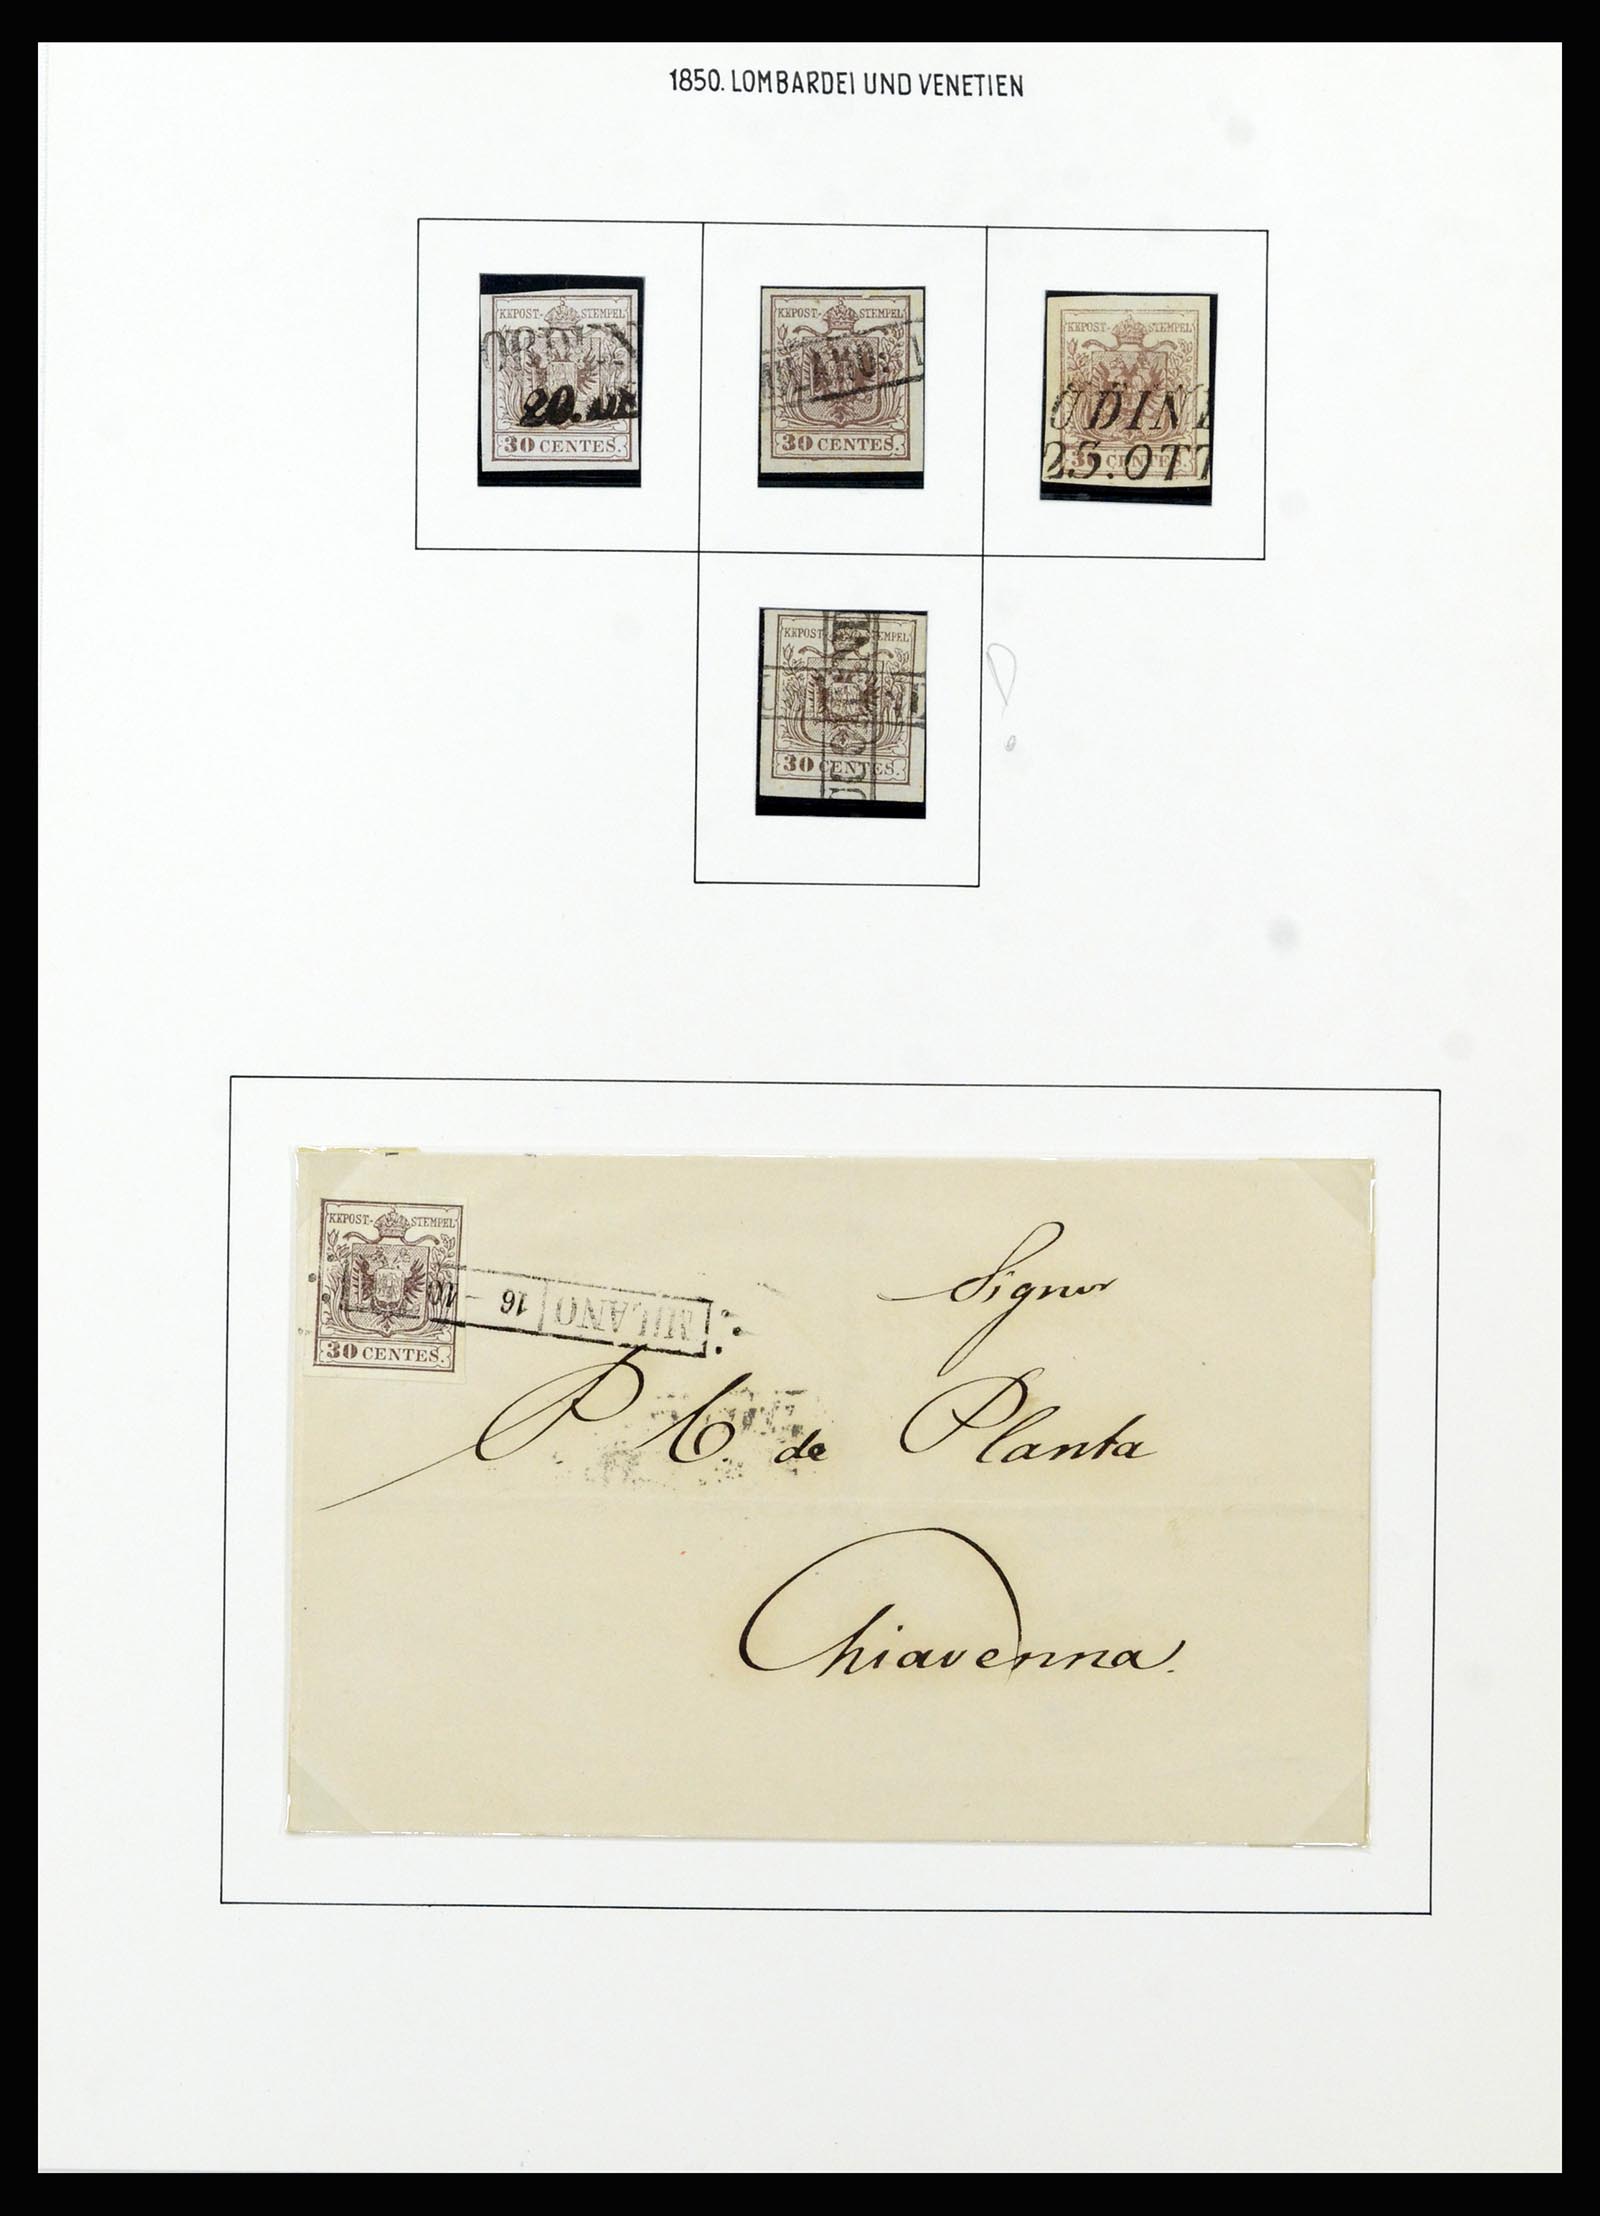 1850. LOMBARDEI UND VENETIEN
KKPOST- STEMPEL
20.
30 CENTES.
KKPOST- STEMPEL
MILANO
30 CENTES.
KKPOST- STEMPEL
UDINE
25. OTT
30 CENTES.
KKPOST- STEMPEL
30 CENTES.
KKPOST- STEMPEL
MILANO 16
30 CENTES.
Signor
P C de Planta
Chiavenna.